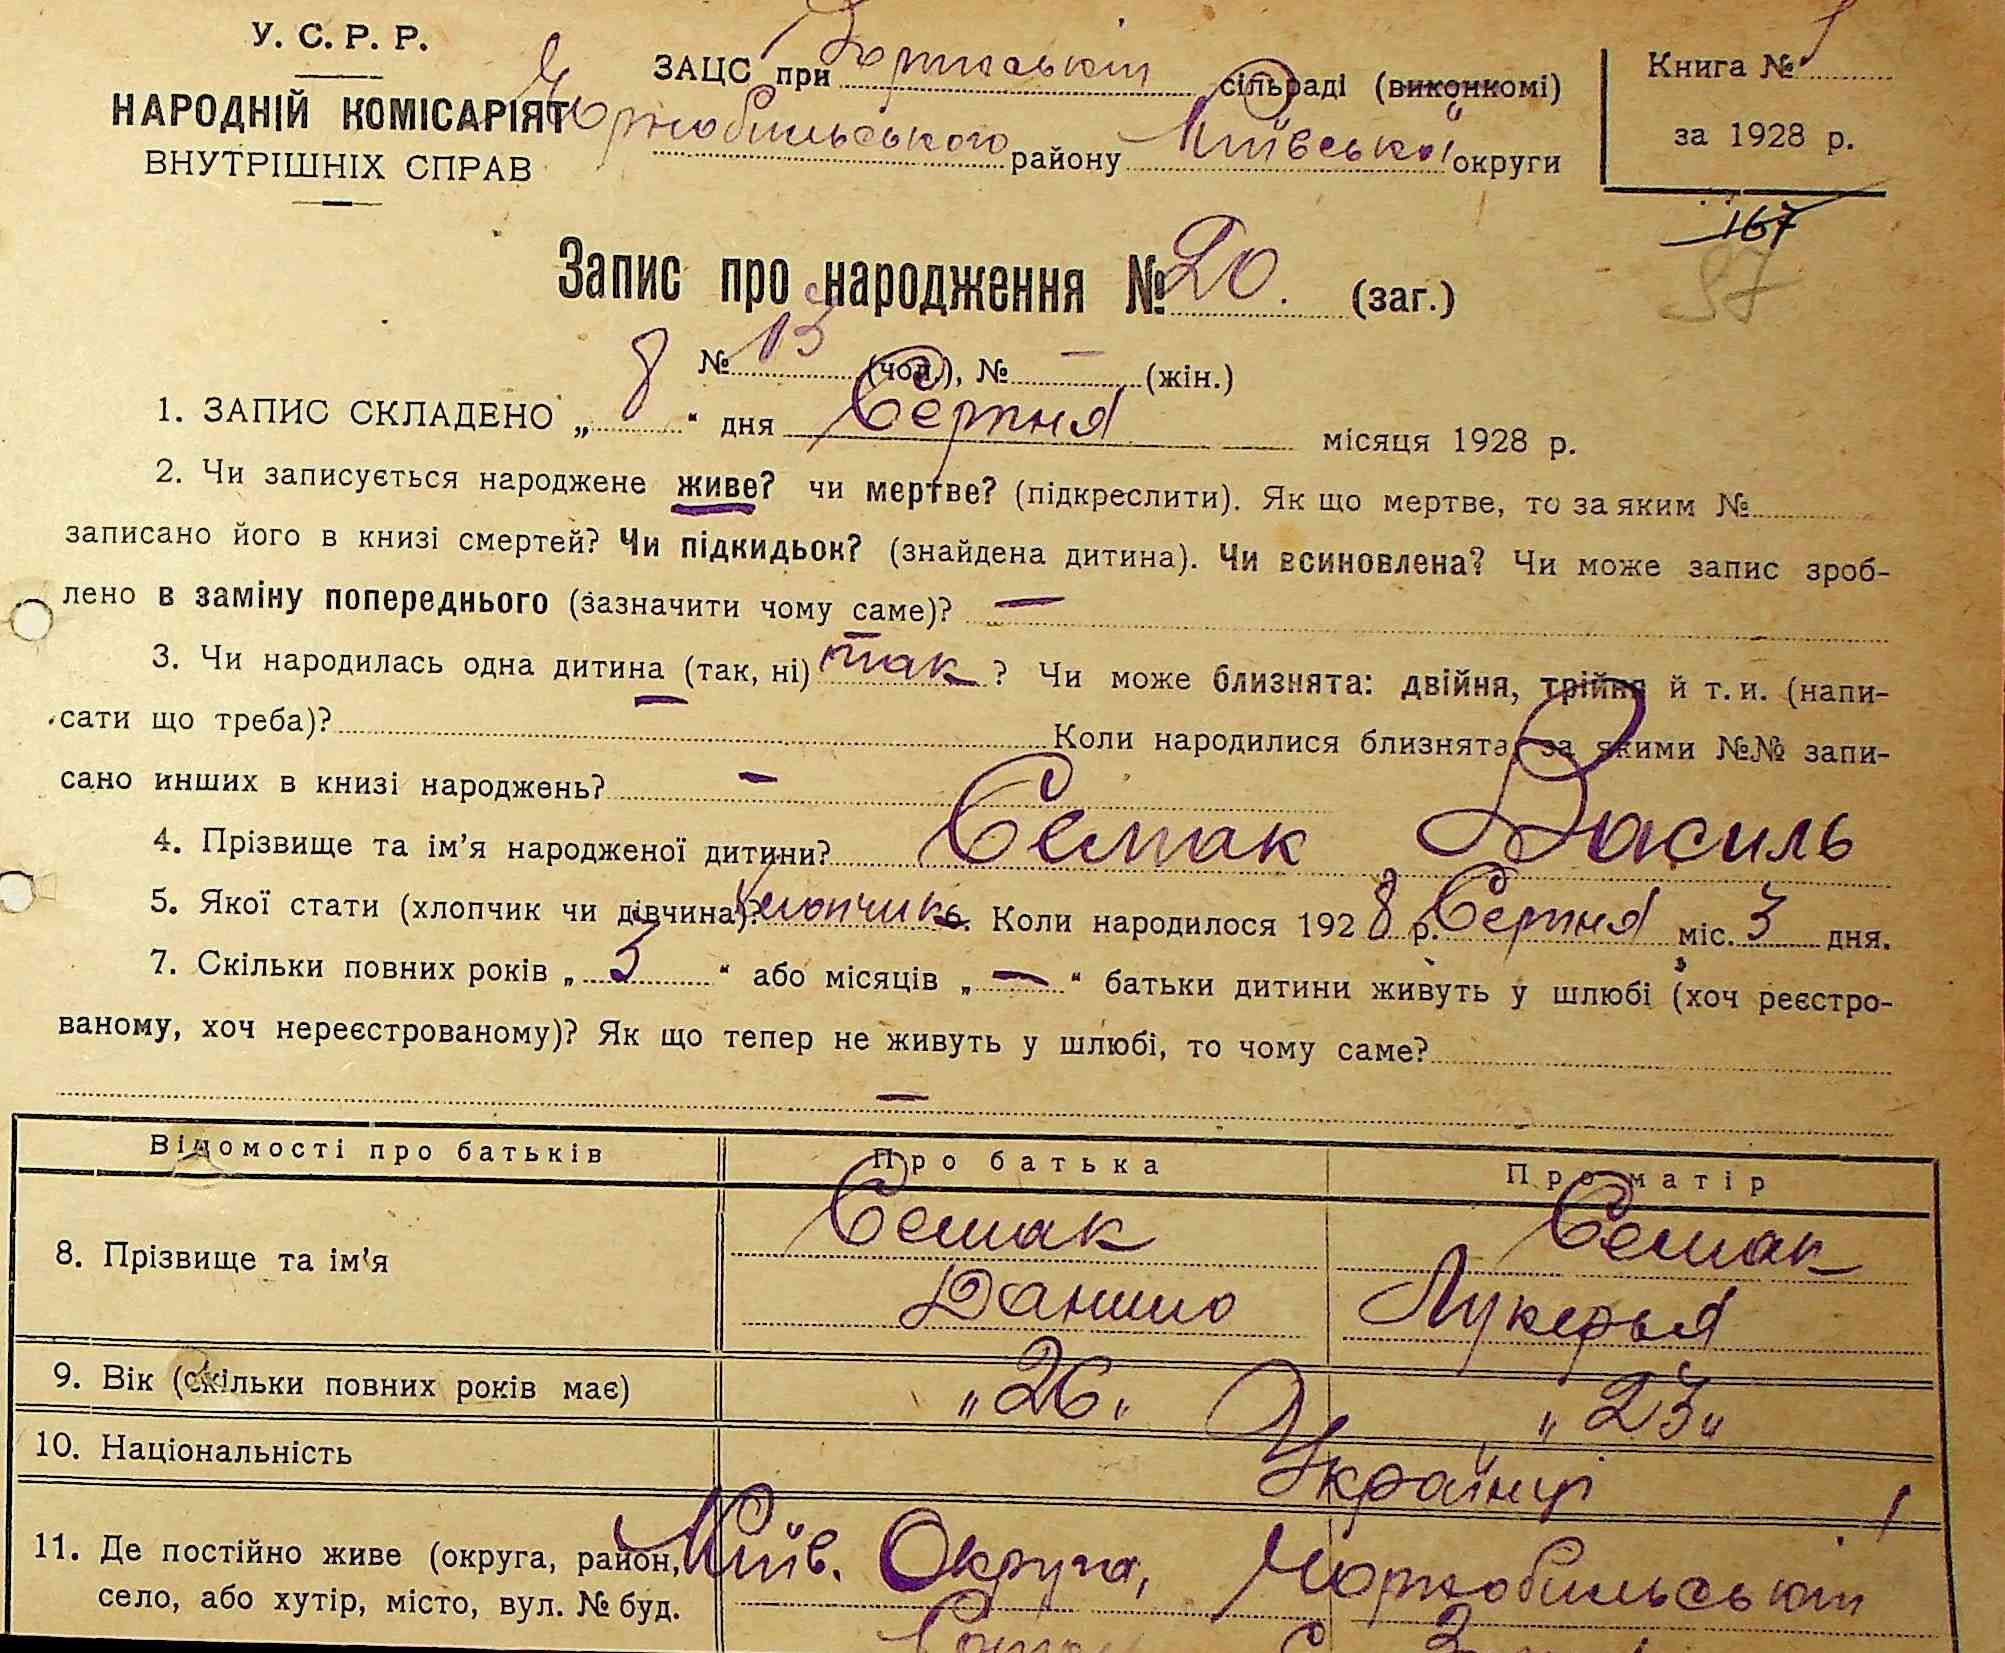 У. С. Р. Р.
НАРОДНІЙ КОМІСАРІЯТ
ВНУТРІШНІХ СПРАВ
ЗАЦС при сільраді (виконкомі)
Чорнобильського району Київської округи
Книга №
за 1928 р.
167
97
Запис про народження № 20. (заг.)
№ 13 (чол.), № — (жін.)
1. ЗАПИС СКЛАДЕНО „ 8 “ дня Серпня місяця 1928 р.
2. Чи записується народжене живе? чи мертве? (підкреслити). Як що мертве, то за яким №
записано його в книзі смертей? Чи підкидьок? (знайдена дитина). Чи всиновлена? Чи може запис зроб-
лено в заміну попереднього (зазначити чому саме)? —
3. Чи народилась одна дитина (так, ні) так ? Чи може близнята: двійня, трійня й т. и. (напи-
сати що треба)? — Коли народилися близнята, за якими №№ запи-
сано инших в книзі народжень? —
4. Прізвище та ім'я народженої дитини? Семак Василь
5. Якої стати (хлопчик чи дівчина)? хлопчик 6. Коли народилося 1928 р. Серпня міс. 3 дня.
7. Скільки повних років „ 3 “ або місяців „ — “ батьки дитини живуть у шлюбі (хоч реєстро-
ваному, хоч нереєстрованому)? Як що тепер не живуть у шлюбі, то чому саме?
—
Відомості про батьків Про батька Про матір
8. Прізвище та ім'я Семак Семак
Данило Лукерья
9. Вік (скільки повних років має) „26„ „23„
10. Національність Українці
11. Де постійно живе (округа, район, Київ. Округа, Чорнобильський
село, або хутір, місто, вул. № буд.